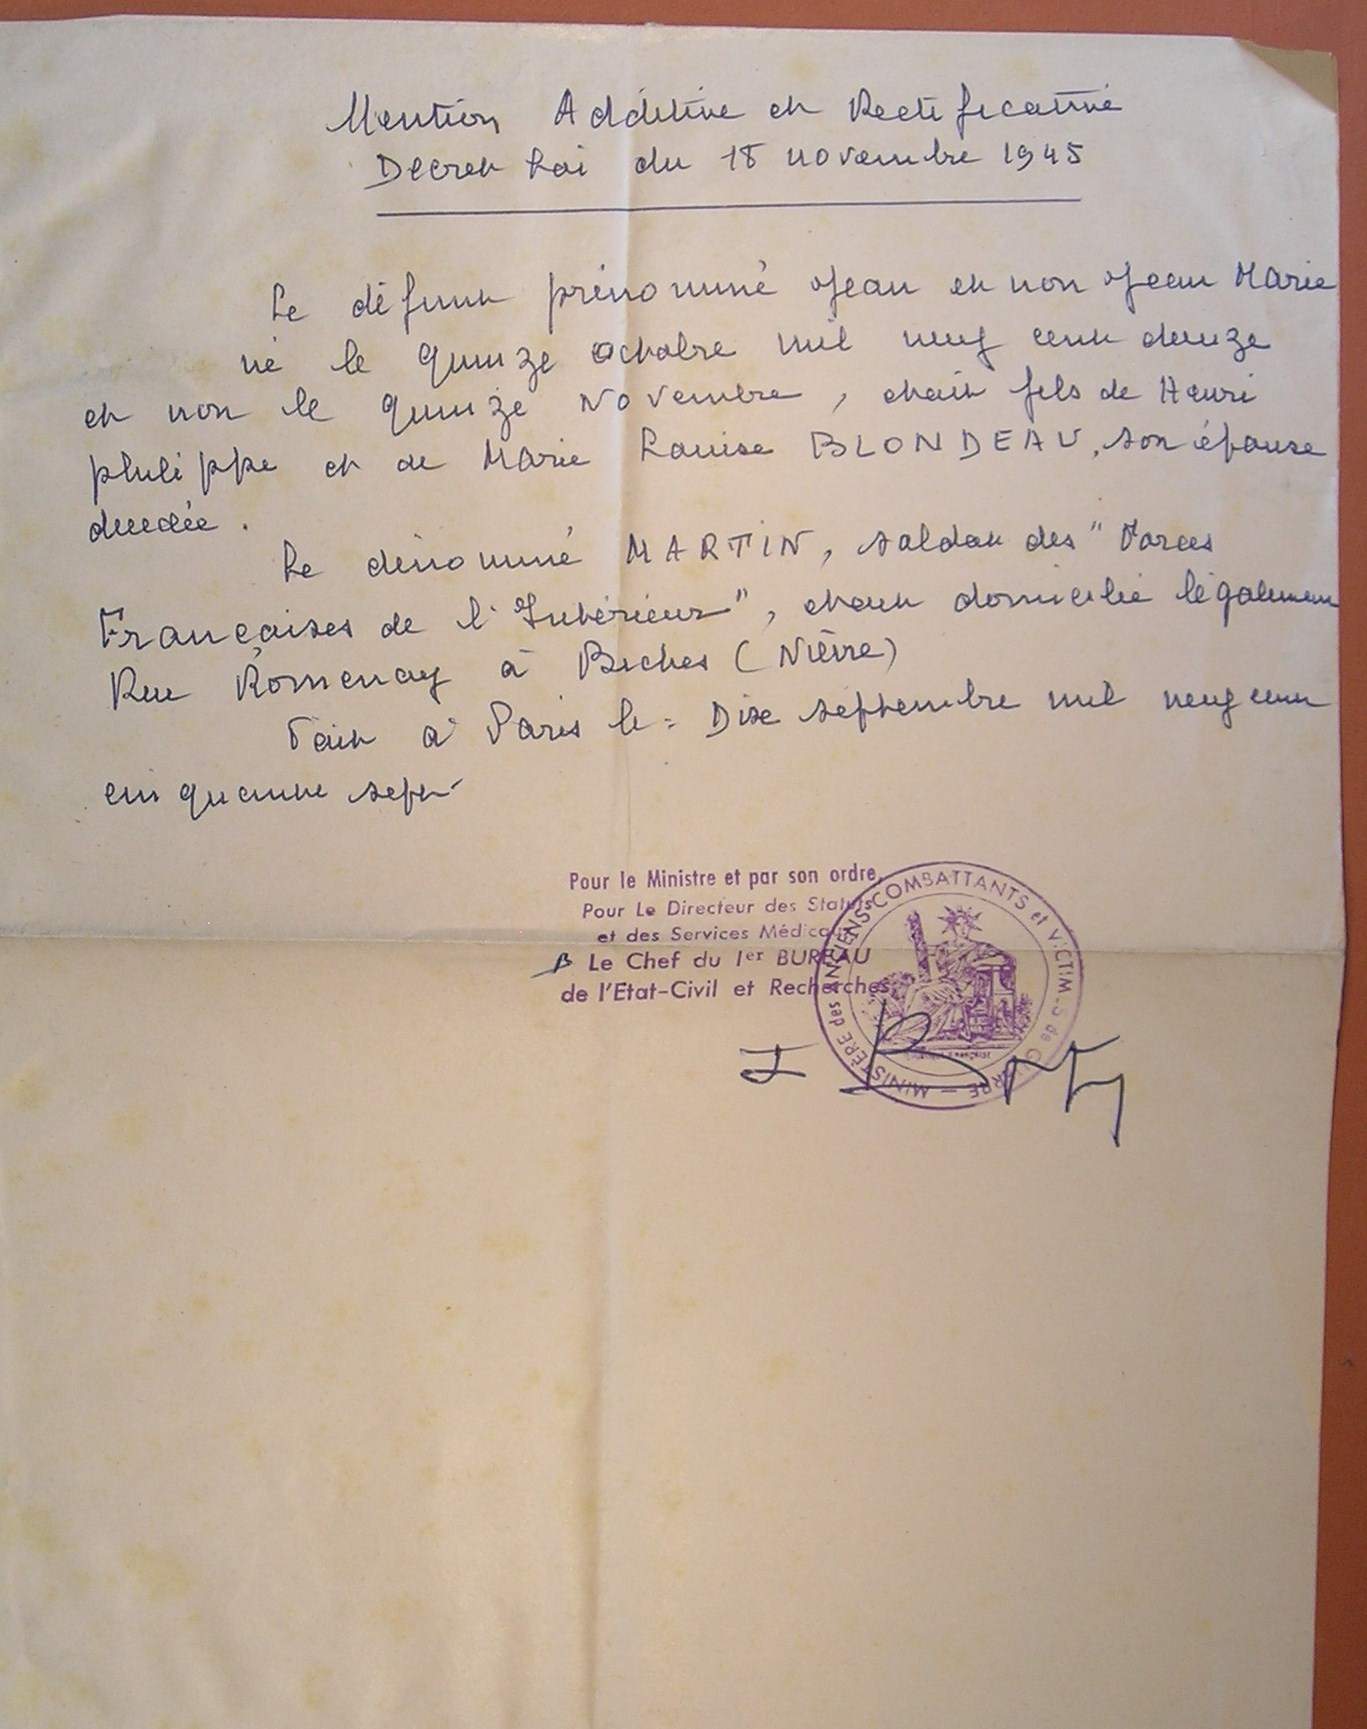 Mention Additive et Rectificative
Decret Loi du 18 novembre 1945
Le défunt prénommé Jean et non Jean Marie
né le quinze octobre mil neuf cent douze
et non le quinze Novembre, était fils de Henri
philippe et de Marie Louise BLONDEAU, son épouse
decedée.
Le dénommé MARTIN, soldat des "Forces
Françaises de l'Intérieur", était domicilié légalement
Rue Romenay à Biches (Nièvre)
Fait à Paris le = Dix septembre mil neuf cent
cinquante sept
Pour le Ministre et par son ordre,
Pour Le Directeur des Statuts
et des Services Médicaux
Le Chef du 1er BUREAU
de l'Etat-Civil et Recherches
MINISTÈRE des ANCIENS COMBATTANTS et VICTIMES de GUERRE —